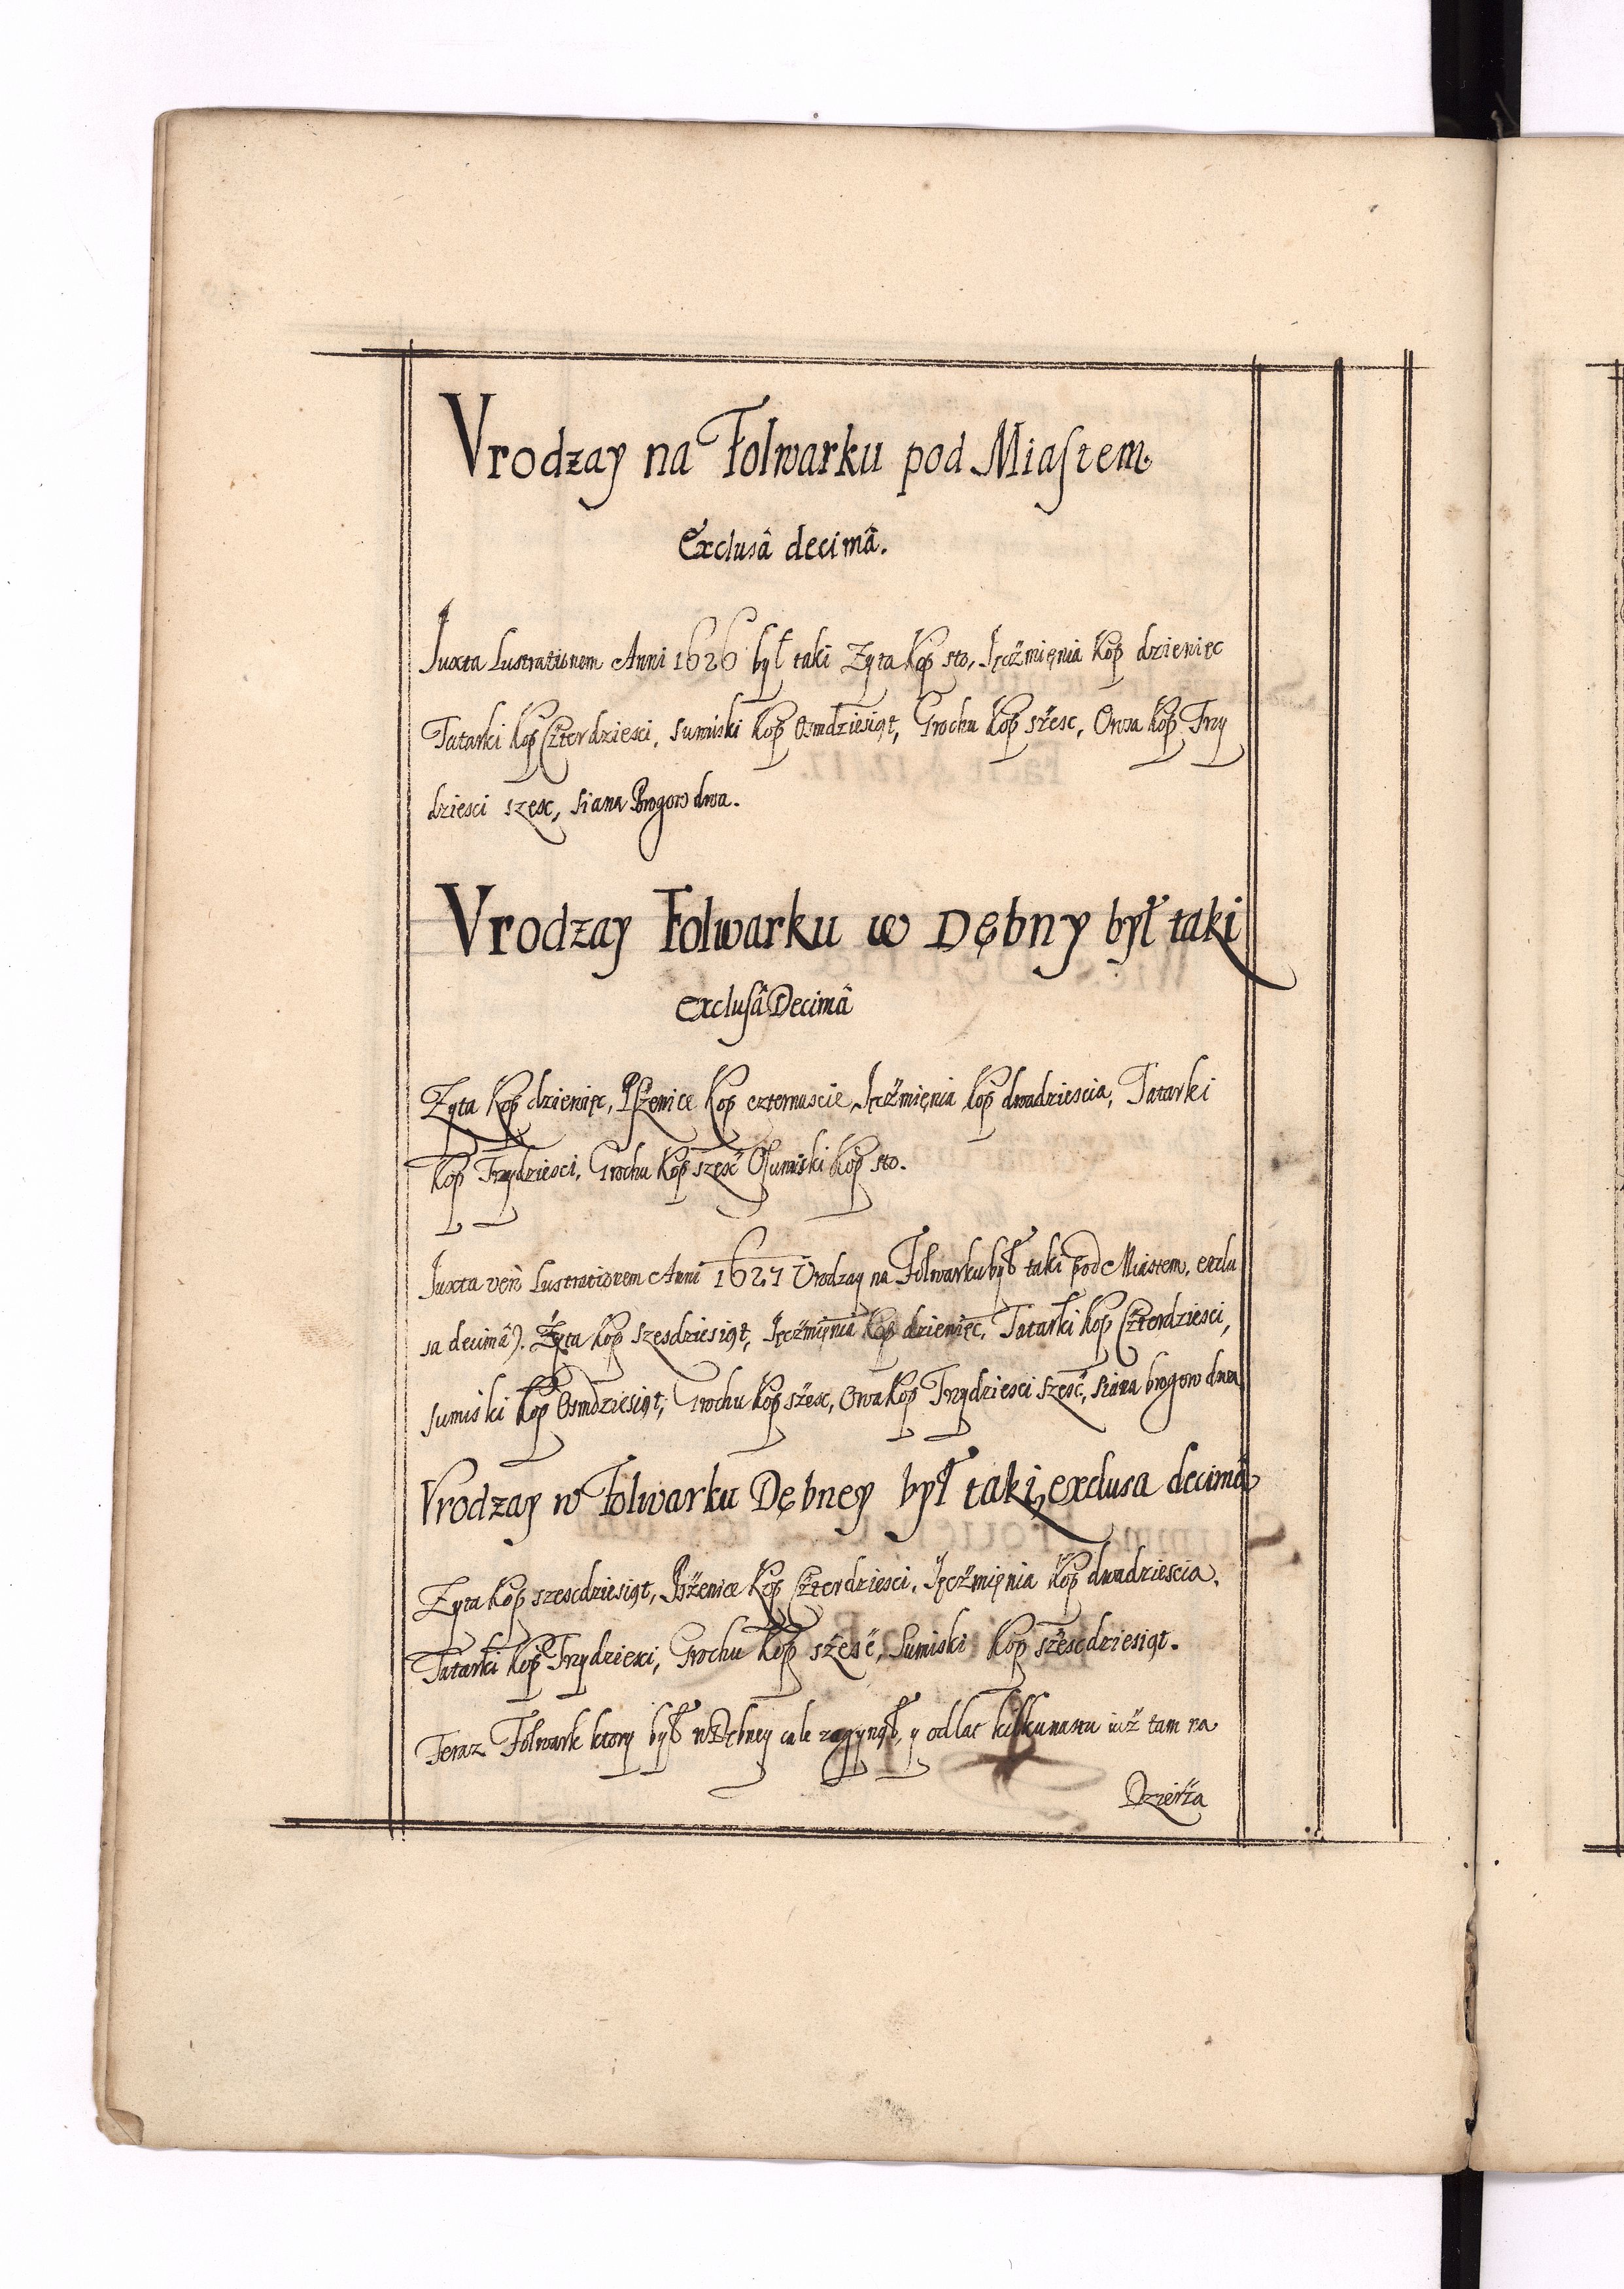 Vrodzay na Folwarku pod Miastem.
Exclusâ decimâ.
Juxta Lustrationem Anni 1626 był taki Zyta Kop sto, Jęczmięnia Kop dziewięc
Tatarki Kop Czterdziesci, sumiski Kop Osmdziesiąt, Grochu Kop szesc, Owsa Kop Trzy
dziesci szesc, siana Brogow dwa.
Vrodzay Folwarku w Dębny był taki
exclusâ Decimâ
Zyta Kop dziewięc, Pszenice Kop czternascie, Jęczmięnia Kop dwadziescia, Tatarki
Kop Trzydziesci, Grochu Kop szesć Osumiski Kop sto.
Juxta verò Lustrationem Anni 1627 Vrodzay na Folwarku był taki pod Miastem, exlu
sa decimâ). Żyta Kop szesdziesiąt, Jęczmięnia Kop dziewięc, Tatarki Kop Czterdziesci,
sumiski Kop Osmdziesiąt, Grochu Kop szesc, Owsa Kop Trzydziesci szesć, siana brogow dwa
Vrodzay w Folwarku Dębney był taki, exclusa decimâ
Zyta Kop szescdziesiąt, Pszenice Kop Czterdziesci, Jęczmięnia Kop dwadziescia,
Tatarki Kop Trzydziesci, Grochu Kop szesć, Sumiski Kop szescdziesiąt.
Teraz Folwark ktory był w Dębney cale zagynął, y od lat kilkunastu iuż tam na
Dzierża